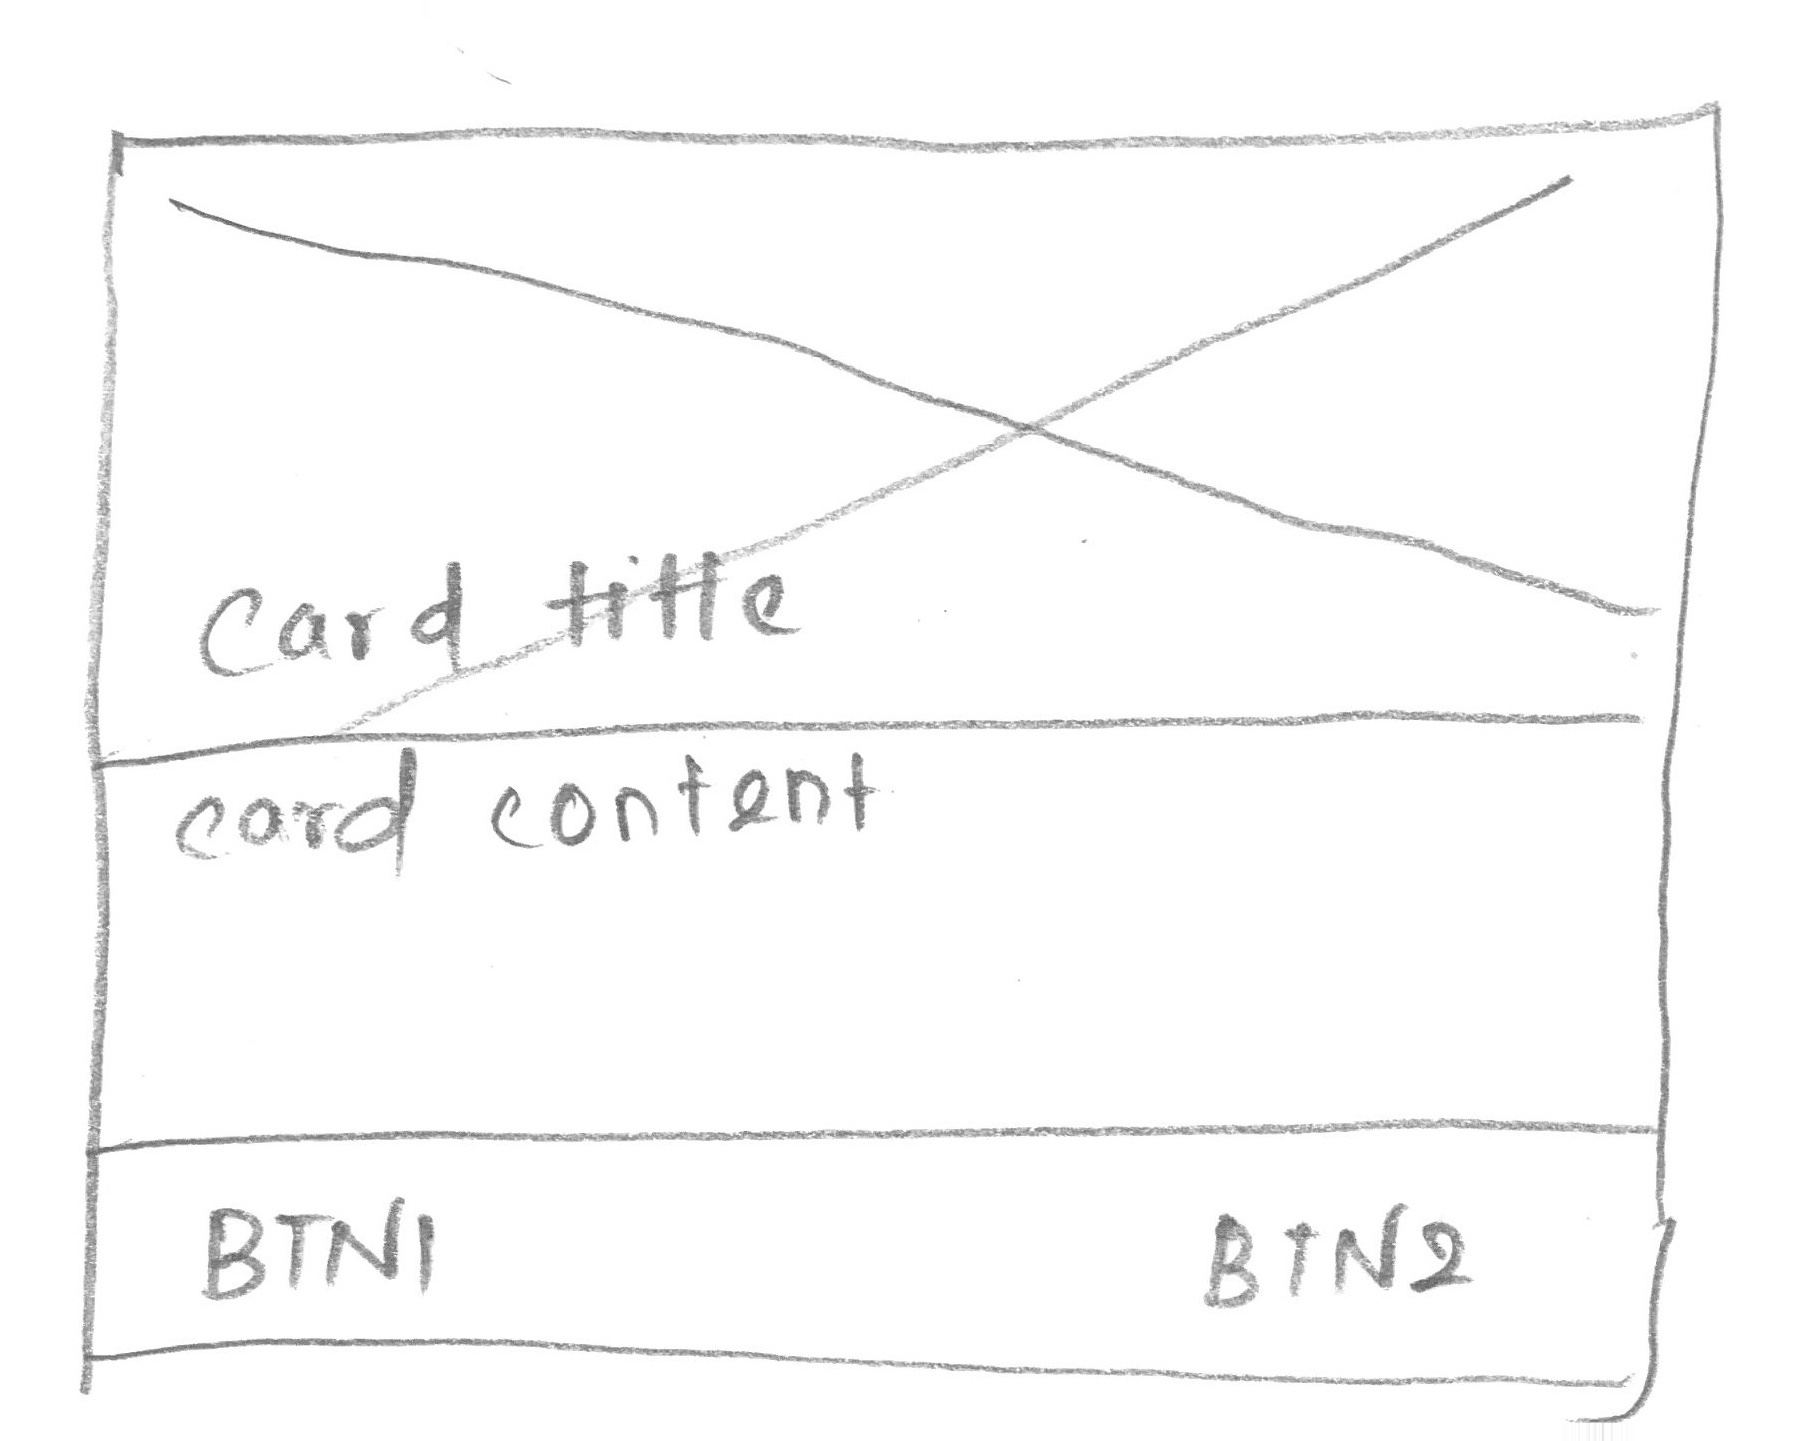 Card title
card content
BTN1
BTN2